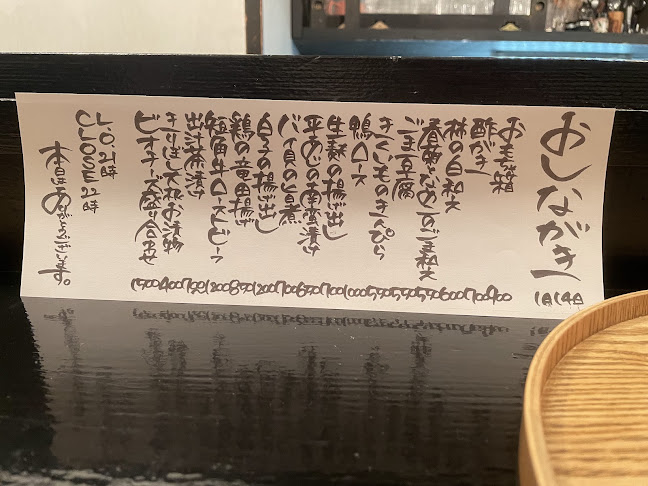 おしながき 1月14日
箱 900
酢がき 700
柿の白和え 600
のごま和え 550
ごま豆腐 550
きくいものきんぴら 550
鴨ロース 1000
生麩の揚げ出し 700
平あじの南蛮漬け 650
バイ貝の旨煮 700
白子の揚げ出し 1200
鶏の竜田揚げ 850
短角牛ローストビーフ 1200
出汁茶漬け 750
きりぼし大根お漬物 400
ビオチーズ盛り合わせ 1500
L.O.21時
CLOSE 22時
本日はありがとうございます。